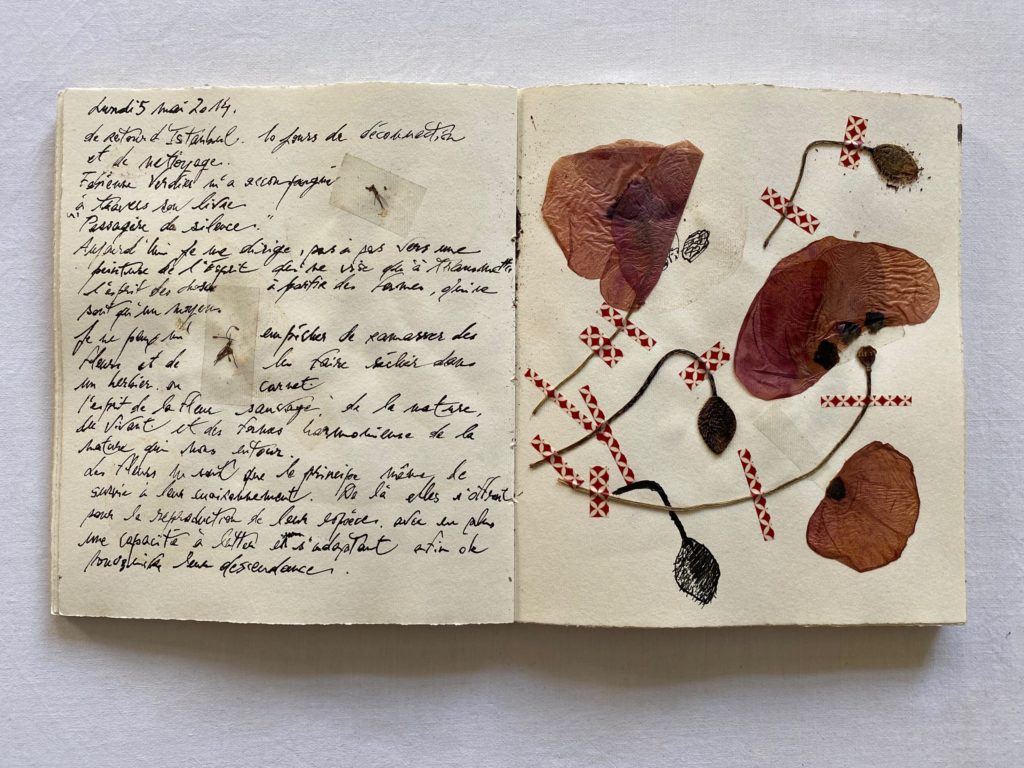 Lundi 5 mai 2014.
de retour d'Istanbul. 10 jours de déconnection
et de nettoyage.
Fabienne Verdier m'a accompagné
à travers son livre
"Passagère du silence".
Aujourd'hui je me dirige, pas à pas vers une
peinture de l'esprit qui ne vise qu'à transmettre
l'esprit des choses à partir des formes, qui ne
sont qu'un moyen
Je ne peux m' empêcher de ramasser des
fleurs et de les faire sécher dans
un herbier ou carnet
l'esprit de la fleur sauvage, de la nature,
du vivant et des formes harmonieuse de la
nature qui nous entour.
Les fleurs ne sont que le principe même de
survie à leur environnement. De là elles s'offrent
pour la reproduction de leur espèces, avec en plus
une capacité à lutter et s'adaptant afin de
leur descendance.